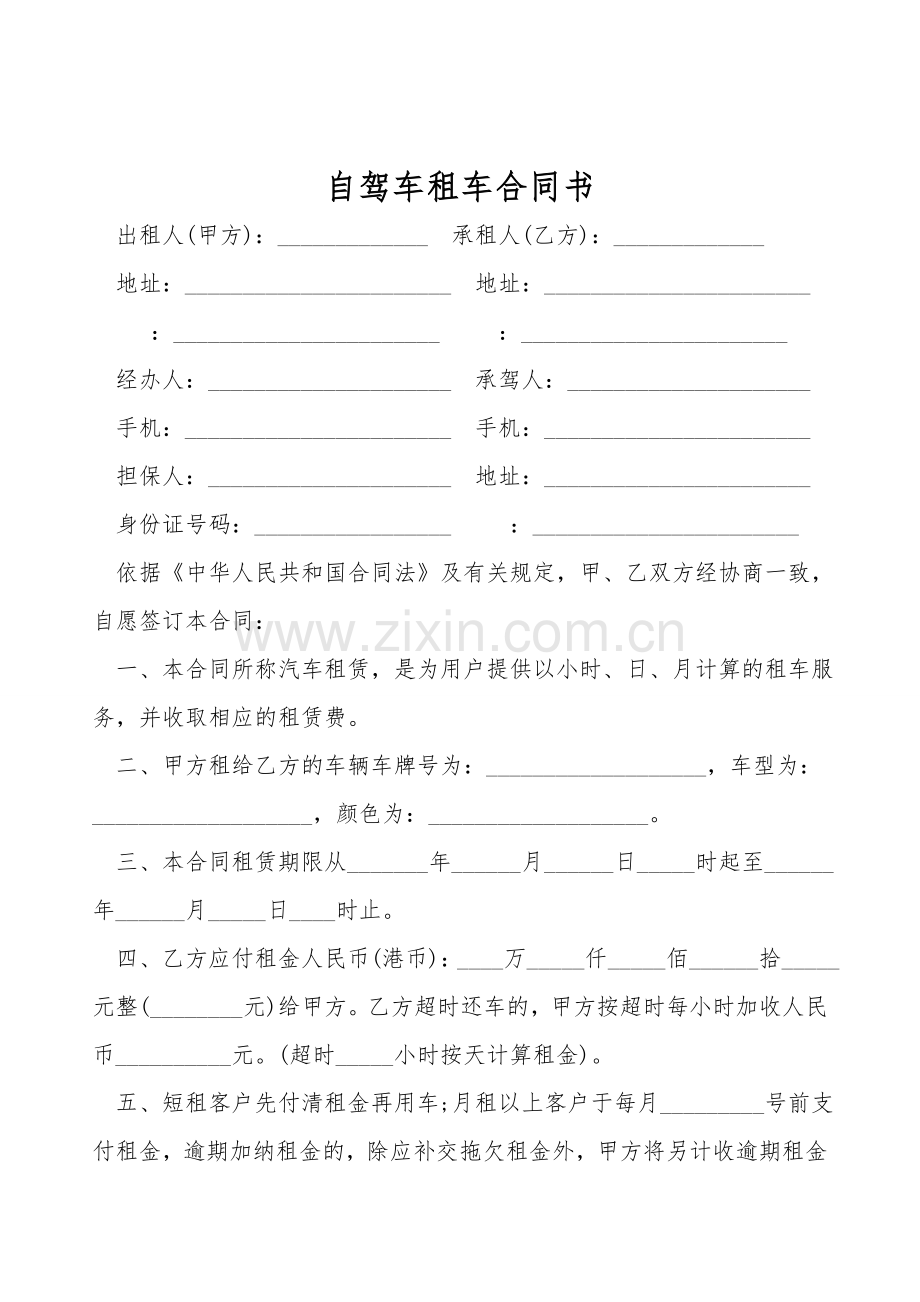 自驾车租车合同书
出租人(甲方)：_____________ 承租人(乙方)：_____________
地址：_______________________ 地址：_______________________
：_______________________ ：_______________________
经办人：_____________________ 承驾人：_____________________
手机：_______________________ 手机：_______________________
担保人：_____________________ 地址：_______________________
身份证号码：_________________ ：_______________________
依据《中华人民共和国合同法》及有关规定，甲、乙双方经协商一致，
自愿签订本合同：
www.zixin.com.cn
一、本合同所称汽车租赁，是为用户提供以小时、日、月计算的租车服
务，并收取相应的租赁费。
二、甲方租给乙方的车辆车牌号为：___________________，车型为：
___________________，颜色为：___________________。
三、本合同租赁期限从_______年______月______日_____时起至______
年______月_____日____时止。
四、乙方应付租金人民币(港币)：____万_____仟_____佰______拾_____
元整(________元)给甲方。乙方超时还车的，甲方按超时每小时加收人民
币__________元。(超时_____小时按天计算租金)。
五、短租客户先付清租金再用车;月租以上客户于每月_________号前支
付租金，逾期加纳租金的，除应补交拖欠租金外，甲方将另计收逾期租金